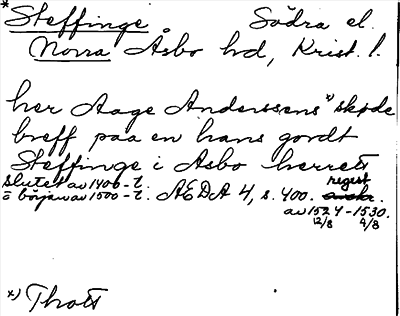 *Steffinge Södra el.
Norra Åsbo hd, Krist. l.
her Aage Anderssens *) skøde
breff paa en hans gordt
Steffinge i Asbo herrett
slutet av 1400-t.
o början av 1500-t. ÆDA 4, s. 400. regist
av 1524-1530.
12/8 9/8
*) Thott